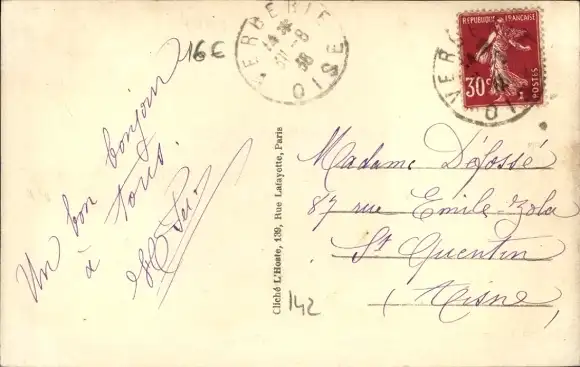 16€
VERBERIE
OISE
REPUBLIQUE FRANÇAISE
30c
POSTES
Un bon bonjour
à tous.
Cliché L'Hoste, 139, Rue Lafayette, Paris
142
Madame Défossé
87 rue Emile-Zola
St Quentin
(Aisne)